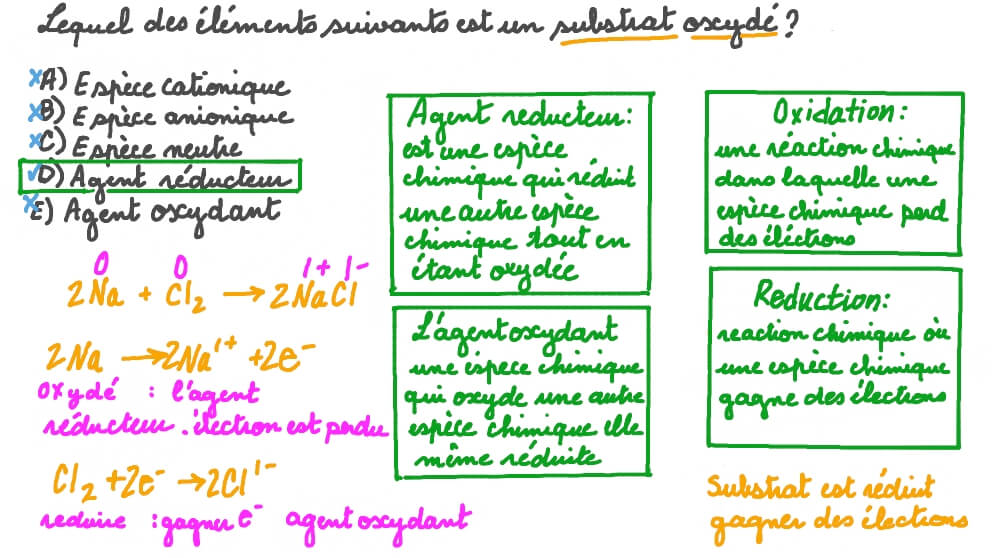 Lequel des éléments suivants est un substrat oxydé ?
xA) Espèce cationique
xB) Espèce anionique
xC) Espèce neutre
✓D) Agent réducteur
xE) Agent oxydant
0 0 1+ 1-
2Na + Cl₂ → 2NaCl
2Na → 2Na¹⁺ + 2e⁻
oxydé : l'agent
réducteur . électron est perdu
Cl₂ + 2e⁻ → 2Cl¹⁻
reduire : gagner e⁻ agent oxydant
Agent reducteur:
est une espèce
chimique qui réduit
une autre espèce
chimique tout en
étant oxydée
L'agent oxydant
une éspèce chimique
qui oxyde une autre
espèce chimique elle
même réduite
Oxidation:
une réaction chimique
dans laquelle une
espèce chimique perd
des éléctions
Reduction:
reaction chimique où
une espèce chimique
gagne des élections
Substrat est réduit
gagner des élections